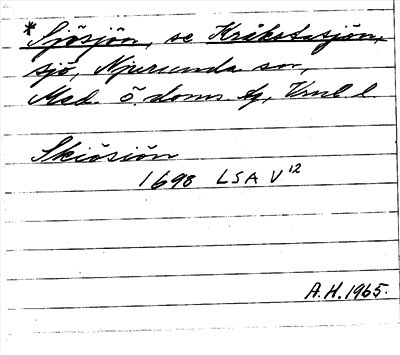 *Sjösjön, se Kråkstasjön,
sjö, Njurunda sn,
Med. ö. doms tg, Vrnl l.
Skiösiön
1698 LSA V 12
A.H. 1965.